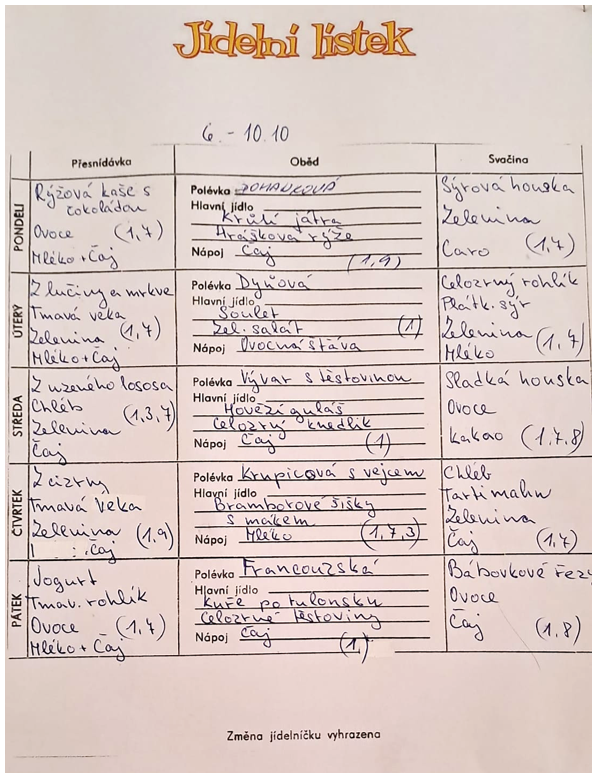 Jídelní lístek
6. - 10.10
Přesnídávka Oběd Svačina
PONDĚLÍ
Rýžová kaše s
čokoládou
Ovoce (1,7)
Mléko + Čaj
Polévka POHANKOVÁ
Hlavní jídlo
Krůtí játra
Hrášková rýže
Nápoj Čaj (1,9)
Sýrová houska
Zelenina
Caro (1,7)
ÚTERÝ
Z lučiny a mrkve
Tmavá veka
Zelenina (1,7)
Mléko + Čaj
Polévka Dýňová
Hlavní jídlo
Šoulet
Zel. salát (1)
Nápoj Ovocná šťáva
Celozrný rohlík
Plátk. sýr
Zelenina (1,7)
Mléko
STŘEDA
Z uzeného lososa
Chléb (1,3,7)
Zelenina
Čaj
Polévka Vývar s těstovinou
Hlavní jídlo
Hovězí guláš
Celozrný knedlík
Nápoj Čaj (1)
Sladká houska
Ovoce
Kakao (1,7,8)
ČTVRTEK
Z cizrny
Tmavá Veka
Zelenina (1,9)
Čaj
Polévka Krupicová s vejcem
Hlavní jídlo
Bramborové šišky
s mákem
Nápoj Mléko (1,7,3)
Chléb
Tartimahn
Zelenina
Čaj (1,7)
PÁTEK
Jogurt
Tmav. rohlík
Ovoce (1,7)
Mléko + Čaj
Polévka Francouzská
Hlavní jídlo
Kuře po tulonsku
Celozrné těstoviny
Nápoj Čaj (1,)
Bábovkové řezy
Ovoce
Čaj (1,8)
Změna jídelníčku vyhrazena